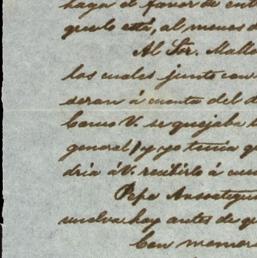 haga el favor de ent
gulo está, al menos d
Al Sor. Mallo
los cuales junto con
seran á cuenta del d
Como V. se quejaba
general) y yo tenia qu
dria á V. recibirlo á cu
Pepe Ansoategui
vuelva hoy antes de q
Con memor